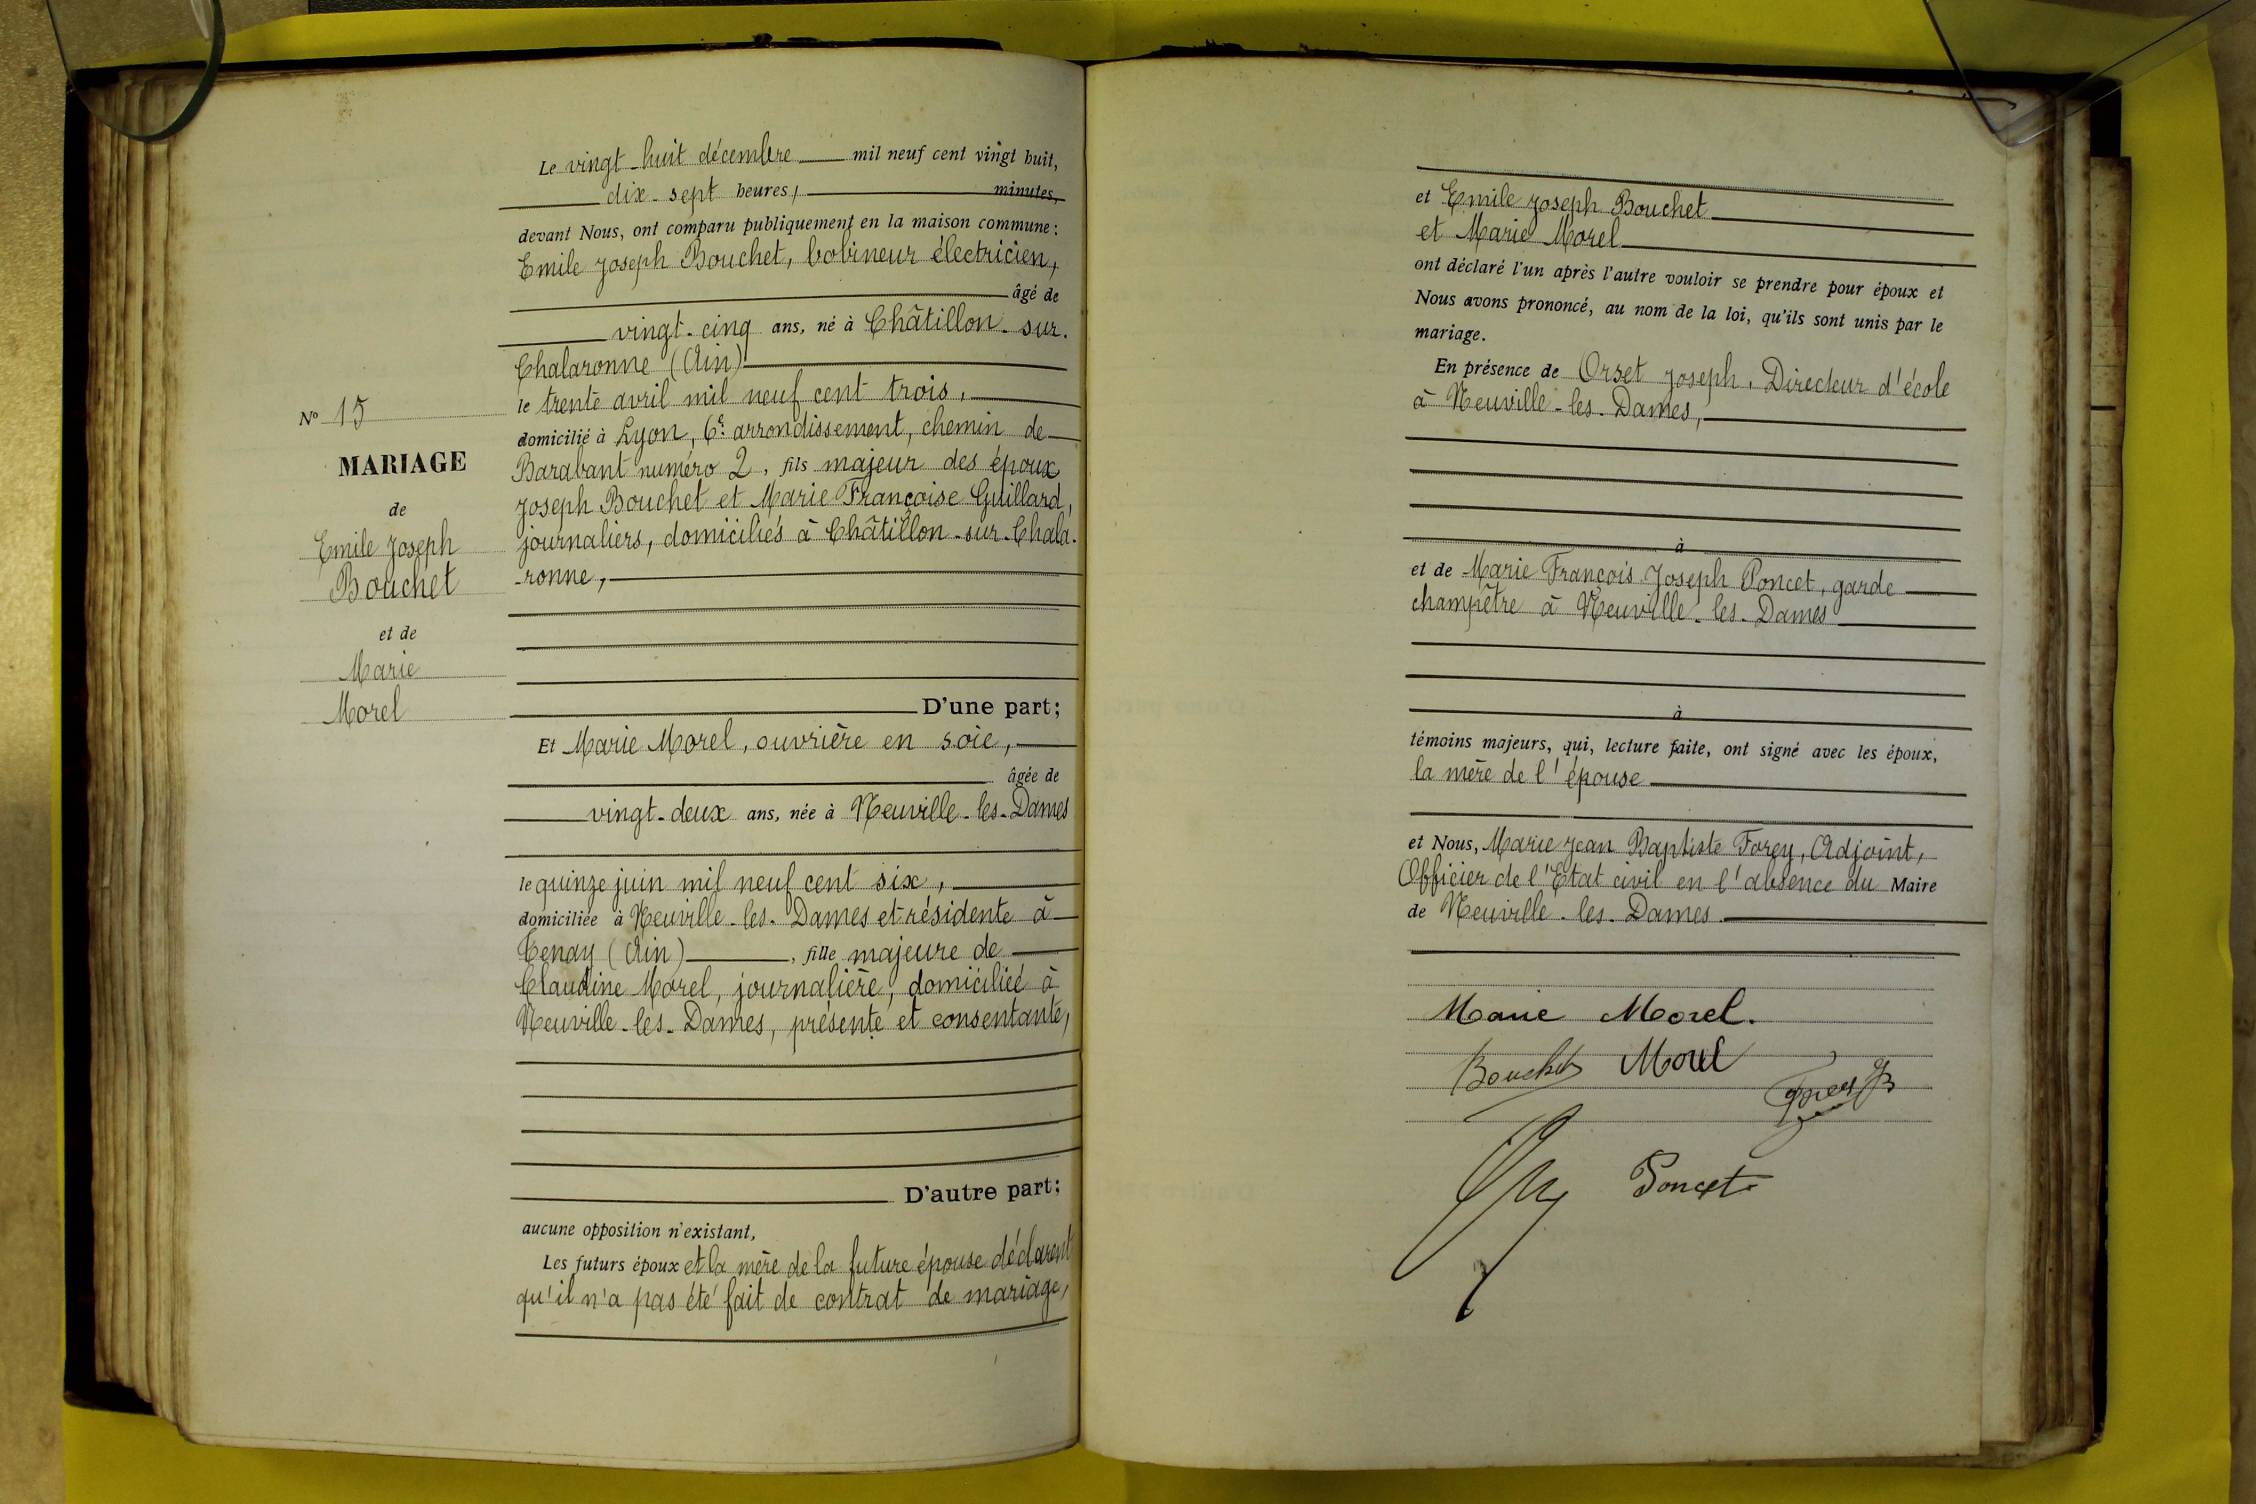 Le vingt-huit décembre mil neuf cent vingt huit,
dix-sept heures, minutes,
devant Nous, ont comparu publiquement en la maison commune:
Emile Joseph Bouchet, bobineur électricien,
âgé de
vingt-cinq ans, né à Châtillon-sur-
Chalaronne (Ain)
le trente avril mil neuf cent trois,
domicilié à Lyon, 6e arrondissement, chemin de
Barabant numéro 2, fils majeur des époux
Joseph Bouchet et Marie Françoise Guillard,
journaliers, domiciliés à Châtillon-sur-Chala-
-ronne,
No 15
MARIAGE
de
Emile Joseph
Bouchet
et de
Marie
Morel
D'une part;
Et Marie Morel, ouvrière en soie,
âgée de
vingt-deux ans, née à Neuville-les-Dames
le quinze juin mil neuf cent six,
domiciliée à Neuville-les-Dames et résidente à
Tenay (Ain), fille majeure de
Claudine Morel, journalière, domiciliée à
Neuville-les-Dames, présente et consentante,
D'autre part;
aucune opposition n'existant,
Les futurs époux et la mère de la future épouse déclarent
qu'il n'a pas été fait de contrat de mariage,
et Emile Joseph Bouchet
et Marie Morel
ont déclaré l'un après l'autre vouloir se prendre pour époux et
Nous avons prononcé, au nom de la loi, qu'ils sont unis par le
mariage.
En présence de Orset Joseph, Directeur d'école
à Neuville-les-Dames,
à
et de Marie François Joseph Poncet, garde
champêtre à Neuville-les-Dames
à
témoins majeurs, qui, lecture faite, ont signé avec les époux,
la mère de l'épouse
et Nous, Marie Jean Baptiste Forey, Adjoint,
Officier de l'Etat civil en l'absence du Maire
de Neuville-les-Dames
Marie Morel.
Bouchet Morel
Forey JB
Poncet